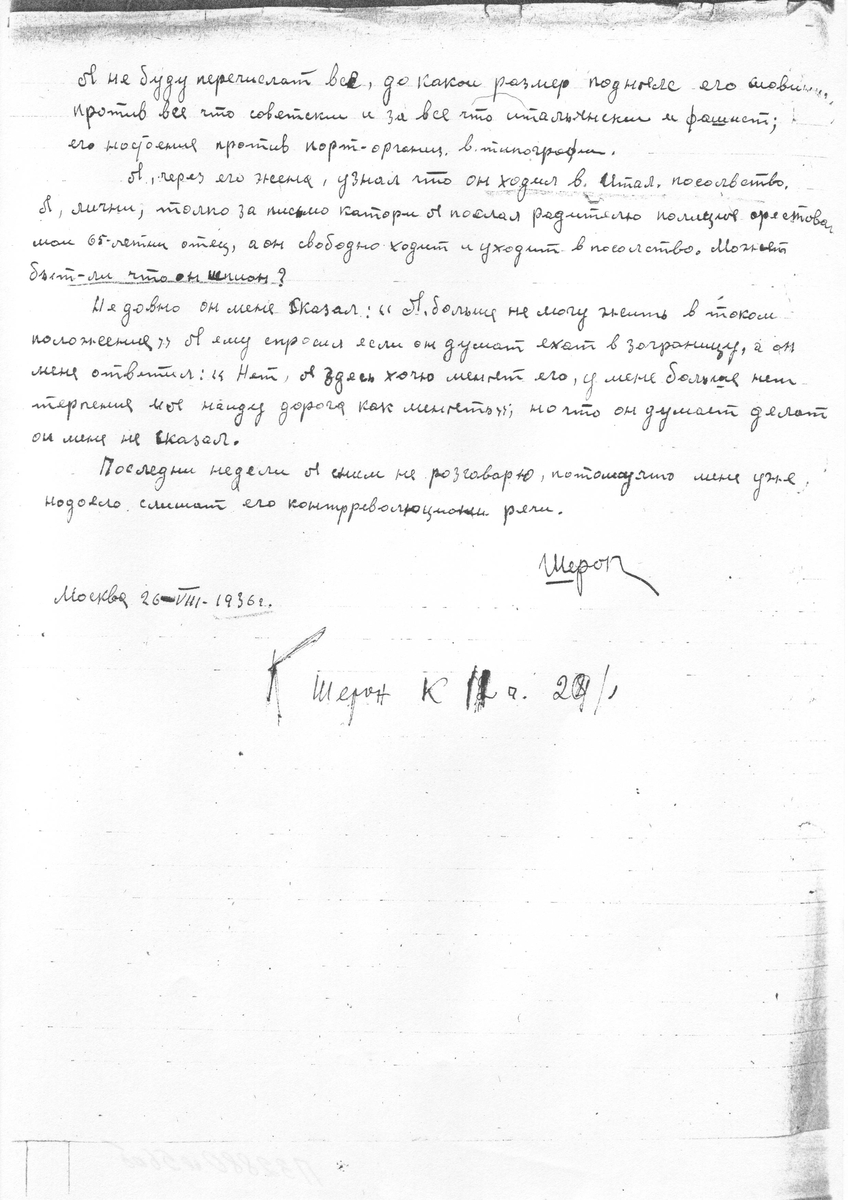 Я не буду перечислат все, до какои размер подняле его
против все что советски и за все что итальянски и фашист;
его настоения против парт-организ. в типографии.
Я, через его жена, узнал что он ходил в. Итал. посольство.
Я, лични, толко за письмо катори я послал радителю полиция арестовал
мои 65-летни отец, а он свободно ходит и уходит в посолство. Может
быт-ли что он шпион?
Не довно он меня сказал: "Я больше не могу жить в таком
положения" Я ему спросил если он думат ехат в заграницу, а он
мене ответил: "Нет, я здесь хочю менят его, у мене больше нет
терпения и я наиду дорога как менять"; но что он думает делат
он мене не сказал.
Последни недели я сним не розговарю, потомучто мене уже
надоело слишат его контрреволюциони речи.
Шерон
Москва 26-VIII-1936г.
Шерон К ч.